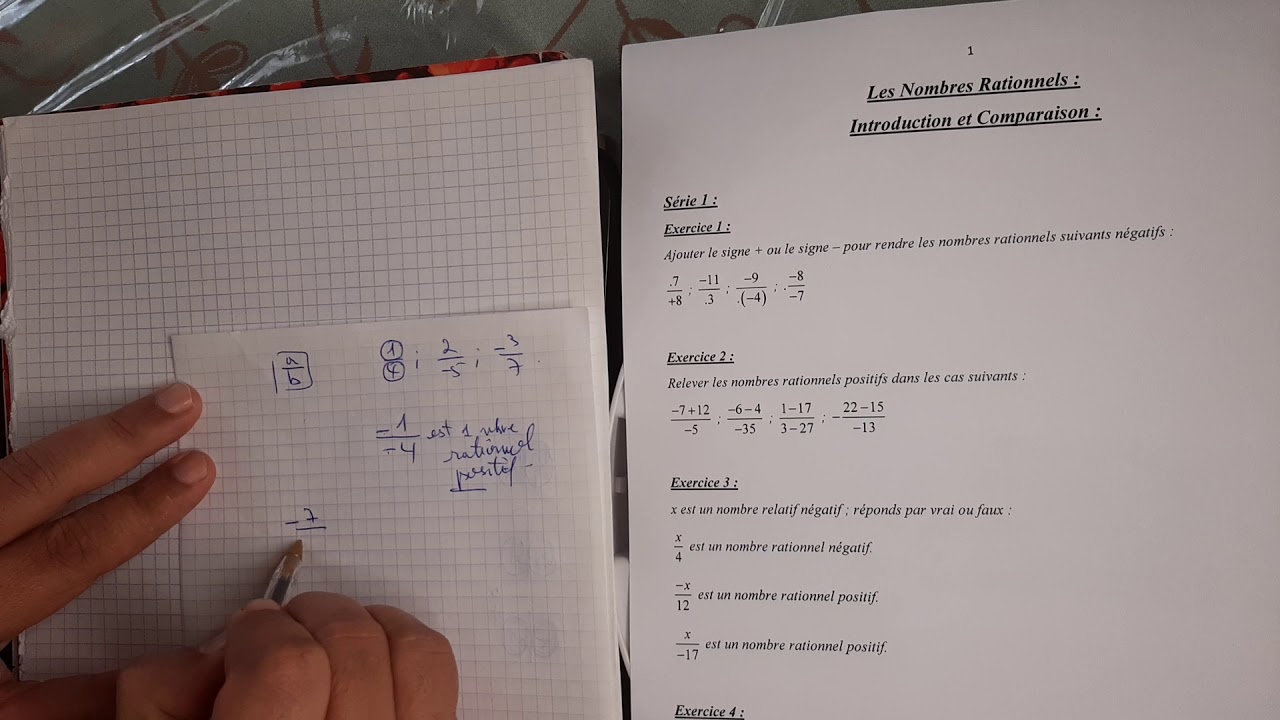 a/b
1/4 ; 2/-5 ; -3/7 .
-1/-4 est 1 nbre
rationnel
positif
-7
1
Les Nombres Rationnels :
Introduction et Comparaison :
Série 1 :
Exercice 1 :
Ajouter le signe + ou le signe – pour rendre les nombres rationnels suivants négatifs :
.7/+8 ; -11/.3 ; -9/.(-4) ; .-8/-7
Exercice 2 :
Relever les nombres rationnels positifs dans les cas suivants :
-7+12/-5 ; -6-4/-35 ; 1-17/3-27 ; -22-15/-13
Exercice 3 :
x est un nombre relatif négatif ; réponds par vrai ou faux :
x/4 est un nombre rationnel négatif.
-x/12 est un nombre rationnel positif.
x/-17 est un nombre rationnel positif.
Exercice 4 :